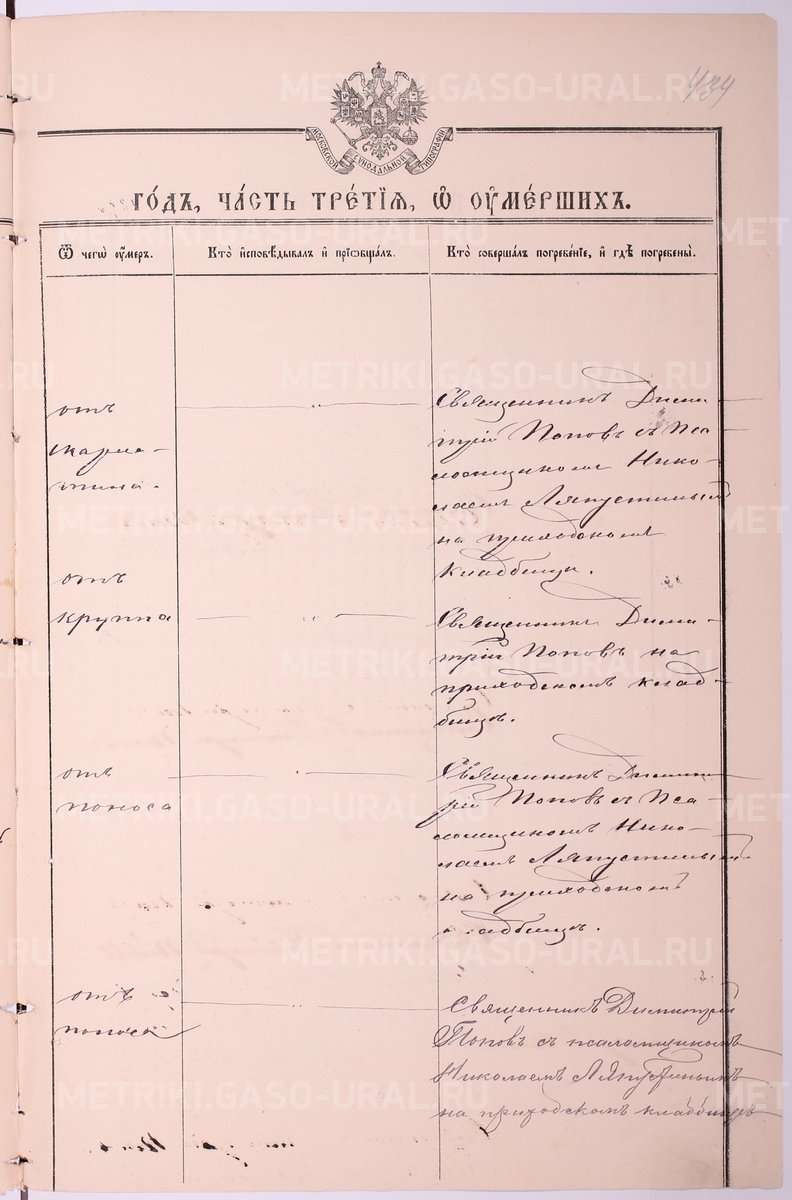 434
МОСКОВСКОЙ СѴНОДАЛЬНОЙ ТИПОГРАФІИ
ГО́ДЪ, ЧА́СТЬ ТРЕ́ТІѦ, Ѡ҆ ОУ҆МЕ́РШИХЪ.
Ѿ чегѡ̀ оу҆́меръ.
Кто̀ и҆сповѣ́дывалъ и҆ прїѡбща́лъ.
Кто̀ соверша́лъ погребе́нїе, и҆ гдѣ̀ погребены̀.
отъ
скарла-
тина.
Священникъ Дими-
трій Поповъ съ Пса-
ломщикомъ Нико-
лаемъ Ляпустинымъ
на приходскомъ
кладбищѣ.
отъ
круппа
Священникъ Дими-
трій Поповъ на
приходскомъ клад-
бищѣ.
отъ
поноса
Священникъ Димит-
рій Поповъ съ Пса-
ломщикомъ Нико-
лаемъ Ляпустинымъ
на приходскомъ
кладбищѣ.
отъ
поноса
Священникъ Димитрій
Поповъ съ псаломщикомъ
Николаемъ Ляпустинымъ
на приходскомъ кладбищѣ
METRIKI.GASO-URAL.RU